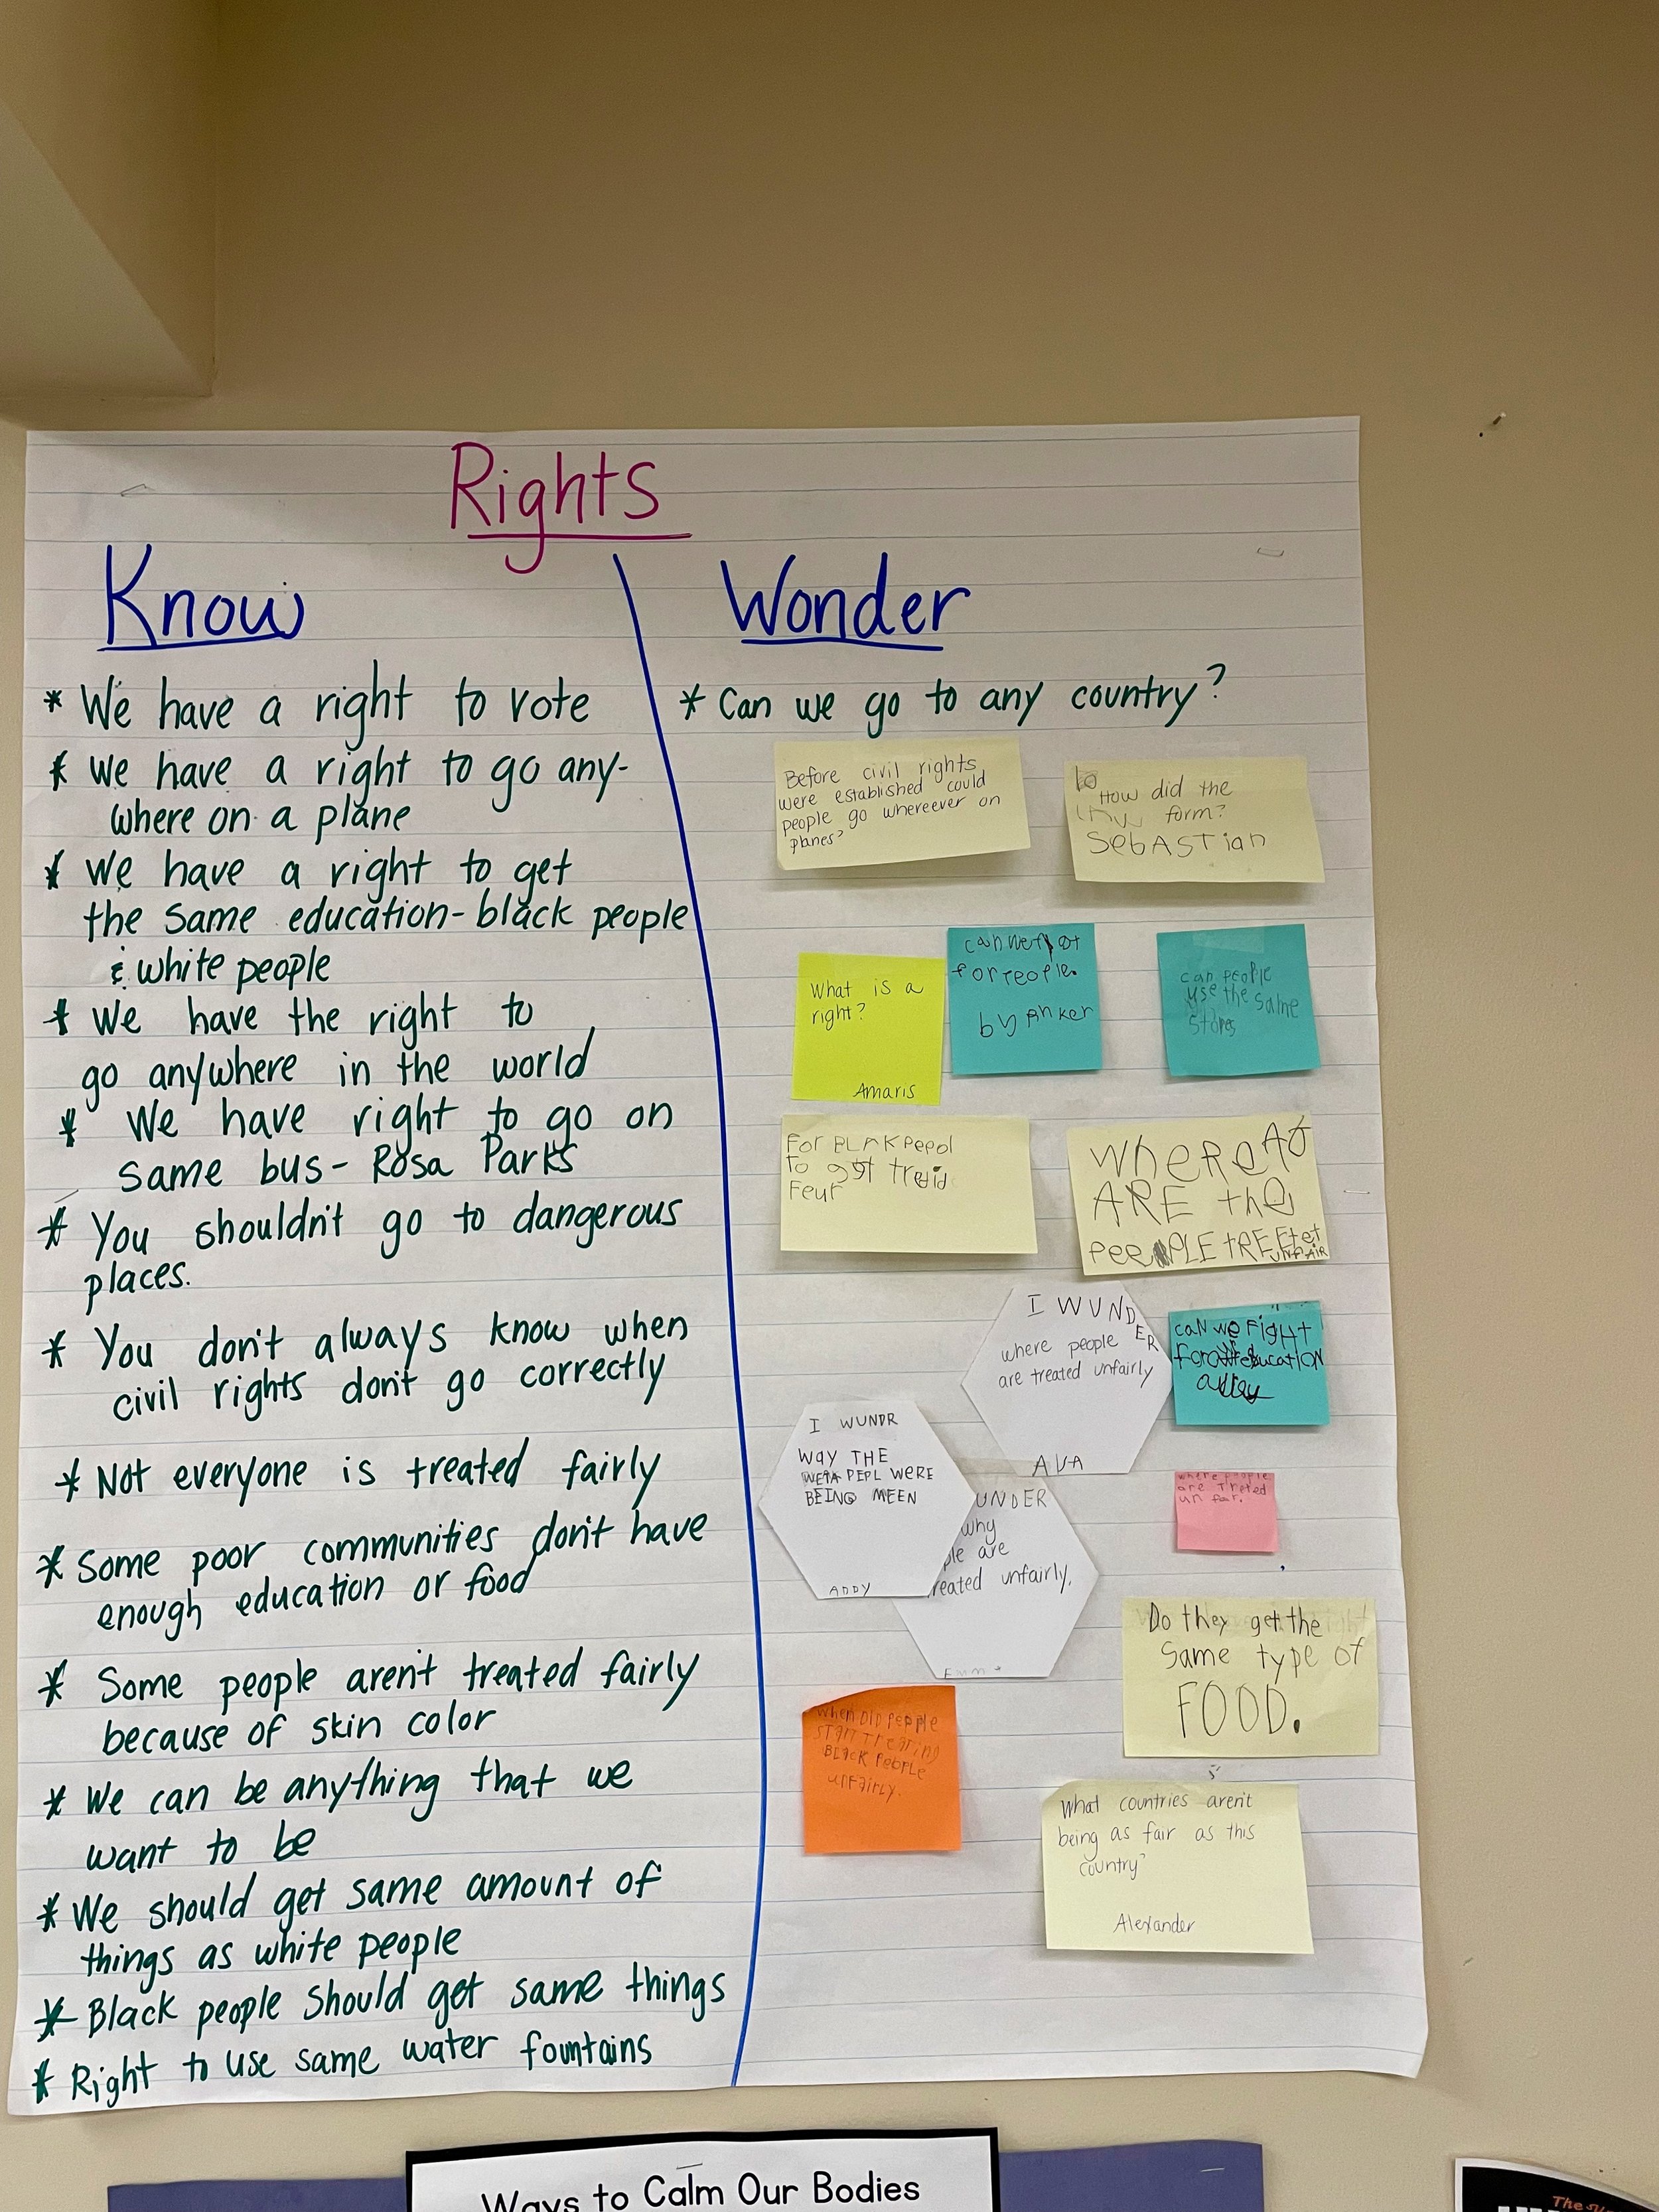 Rights
Know
* We have a right to vote
* We have a right to go any-
where on a plane
* We have a right to get
the same education- black people
& white people
* We have the right to
go anywhere in the world
* We have right to go on
same bus- Rosa Parks
* You shouldn't go to dangerous
places.
* You don't always know when
civil rights don't go correctly
* Not everyone is treated fairly
* Some poor communities don't have
enough education or food
* Some people aren't treated fairly
because of skin color
* We can be anything that we
want to be
* We should get same amount of
things as white people
* Black people should get same things
* Right to use same water fountains
Wonder
* Can we go to any country?
Before civil rights
were established could
people go whereever on
planes?
How did the
form?
SebASTian
What is a
right?
Amaris
can we
for people.
by Anker
can people
use the same
stores
For BLAKPeepol
To get
Feur
WhereAt
ARE the
PEEPLE tREEtet
UNFAIR
I WUNDER
where people
are treated unfairly
AVA
can we Fight
I WUNDR
WAY THE
PEPL WERE
BEING MEEN
ADDY
UNDER
why
ple are
reated unfairly.
where people
are Treted
un fer.
Do they get the
Same type of
FOOD.
When DiD PeoPle
STArt TreATing
BLACK PeoPLE
unFairly.
What countries aren't
being as fair as this
country?
Alexander
Ways to Calm Our Bodies